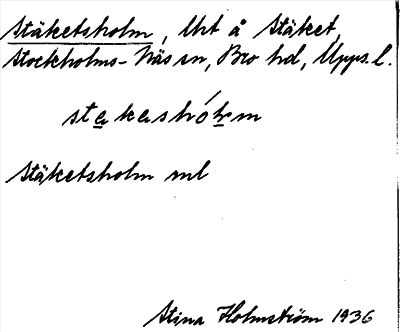 Stäketsholm, Uht å Stäket,
Stockholms-Näs sn, Bro hd, Upps. l.
stakashólm
Stäketsholm ml
Stina Holmström 1936